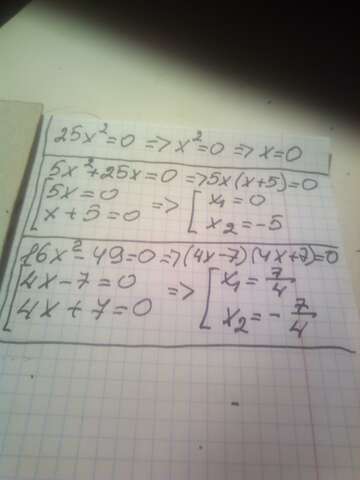 25x²=0 => x²=0 => x=0
5x²+25x=0 => 5x(x+5)=0
[5x=0
[x+5=0 => [x₁=0
[x₂=-5
16x²-49=0 => (4x-7)(4x+7)=0
[4x-7=0
[4x+7=0 => [x₁=7/4
[x₂=-7/4